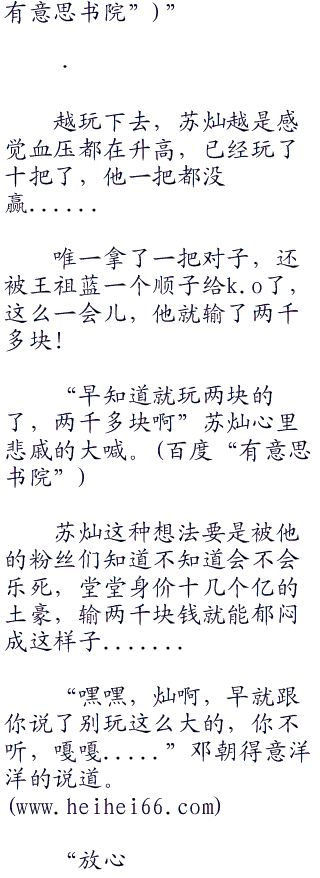 有意思书院”)”
.
越玩下去，苏灿越是感
觉血压都在升高，已经玩了
十把了，他一把都没
赢......
唯一拿了一把对子，还
被王祖蓝一个顺子给k.o了，
这么一会儿，他就输了两千
多块！
“早知道就玩两块的
了，两千多块啊”苏灿心里
悲戚的大喊。(百度“有意思
书院”)
苏灿这种想法要是被他
的粉丝们知道不知道会不会
乐死，堂堂身价十几个亿的
土豪，输两千块钱就能郁闷
成这样子.......
“嘿嘿，灿啊，早就跟
你说了别玩这么大的，你不
听，嘎嘎.....”邓朝得意洋
洋的说道。
(www.heihei66.com)
“放心